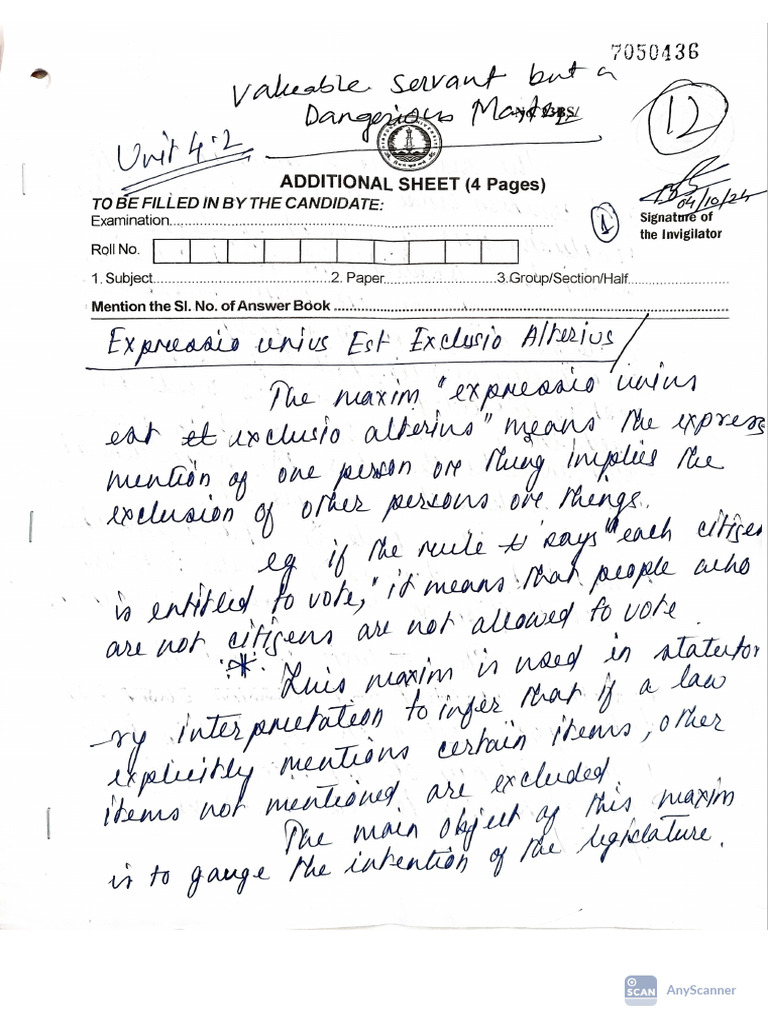 7050436
Valueable servant but a
Dangerious Master
12
Unit 4.2
ADDITIONAL SHEET (4 Pages)
04/10/24
TO BE FILLED IN BY THE CANDIDATE:
Examination
1
Signature of
the Invigilator
Roll No.
1. Subject 2. Paper 3.Group/Section/Half
Mention the Sl. No. of Answer Book
Expressio unius Est Exclusio Alterius
The maxim "expressio unius
est exclusio alterius" means the express
mention of one person or thing implies the
exclusion of other persons or things.
eg if the rule says "each citizen
is entitled to vote," it means that people who
are not citizens are not allowed to vote
* This maxim is used in statuto
ry interpretation to infer that if a law
explicitly mentions certain items, other
items not mentioned are excluded.
The main object of this maxim
is to gauge the intention of the legislature.
SCAN AnyScanner